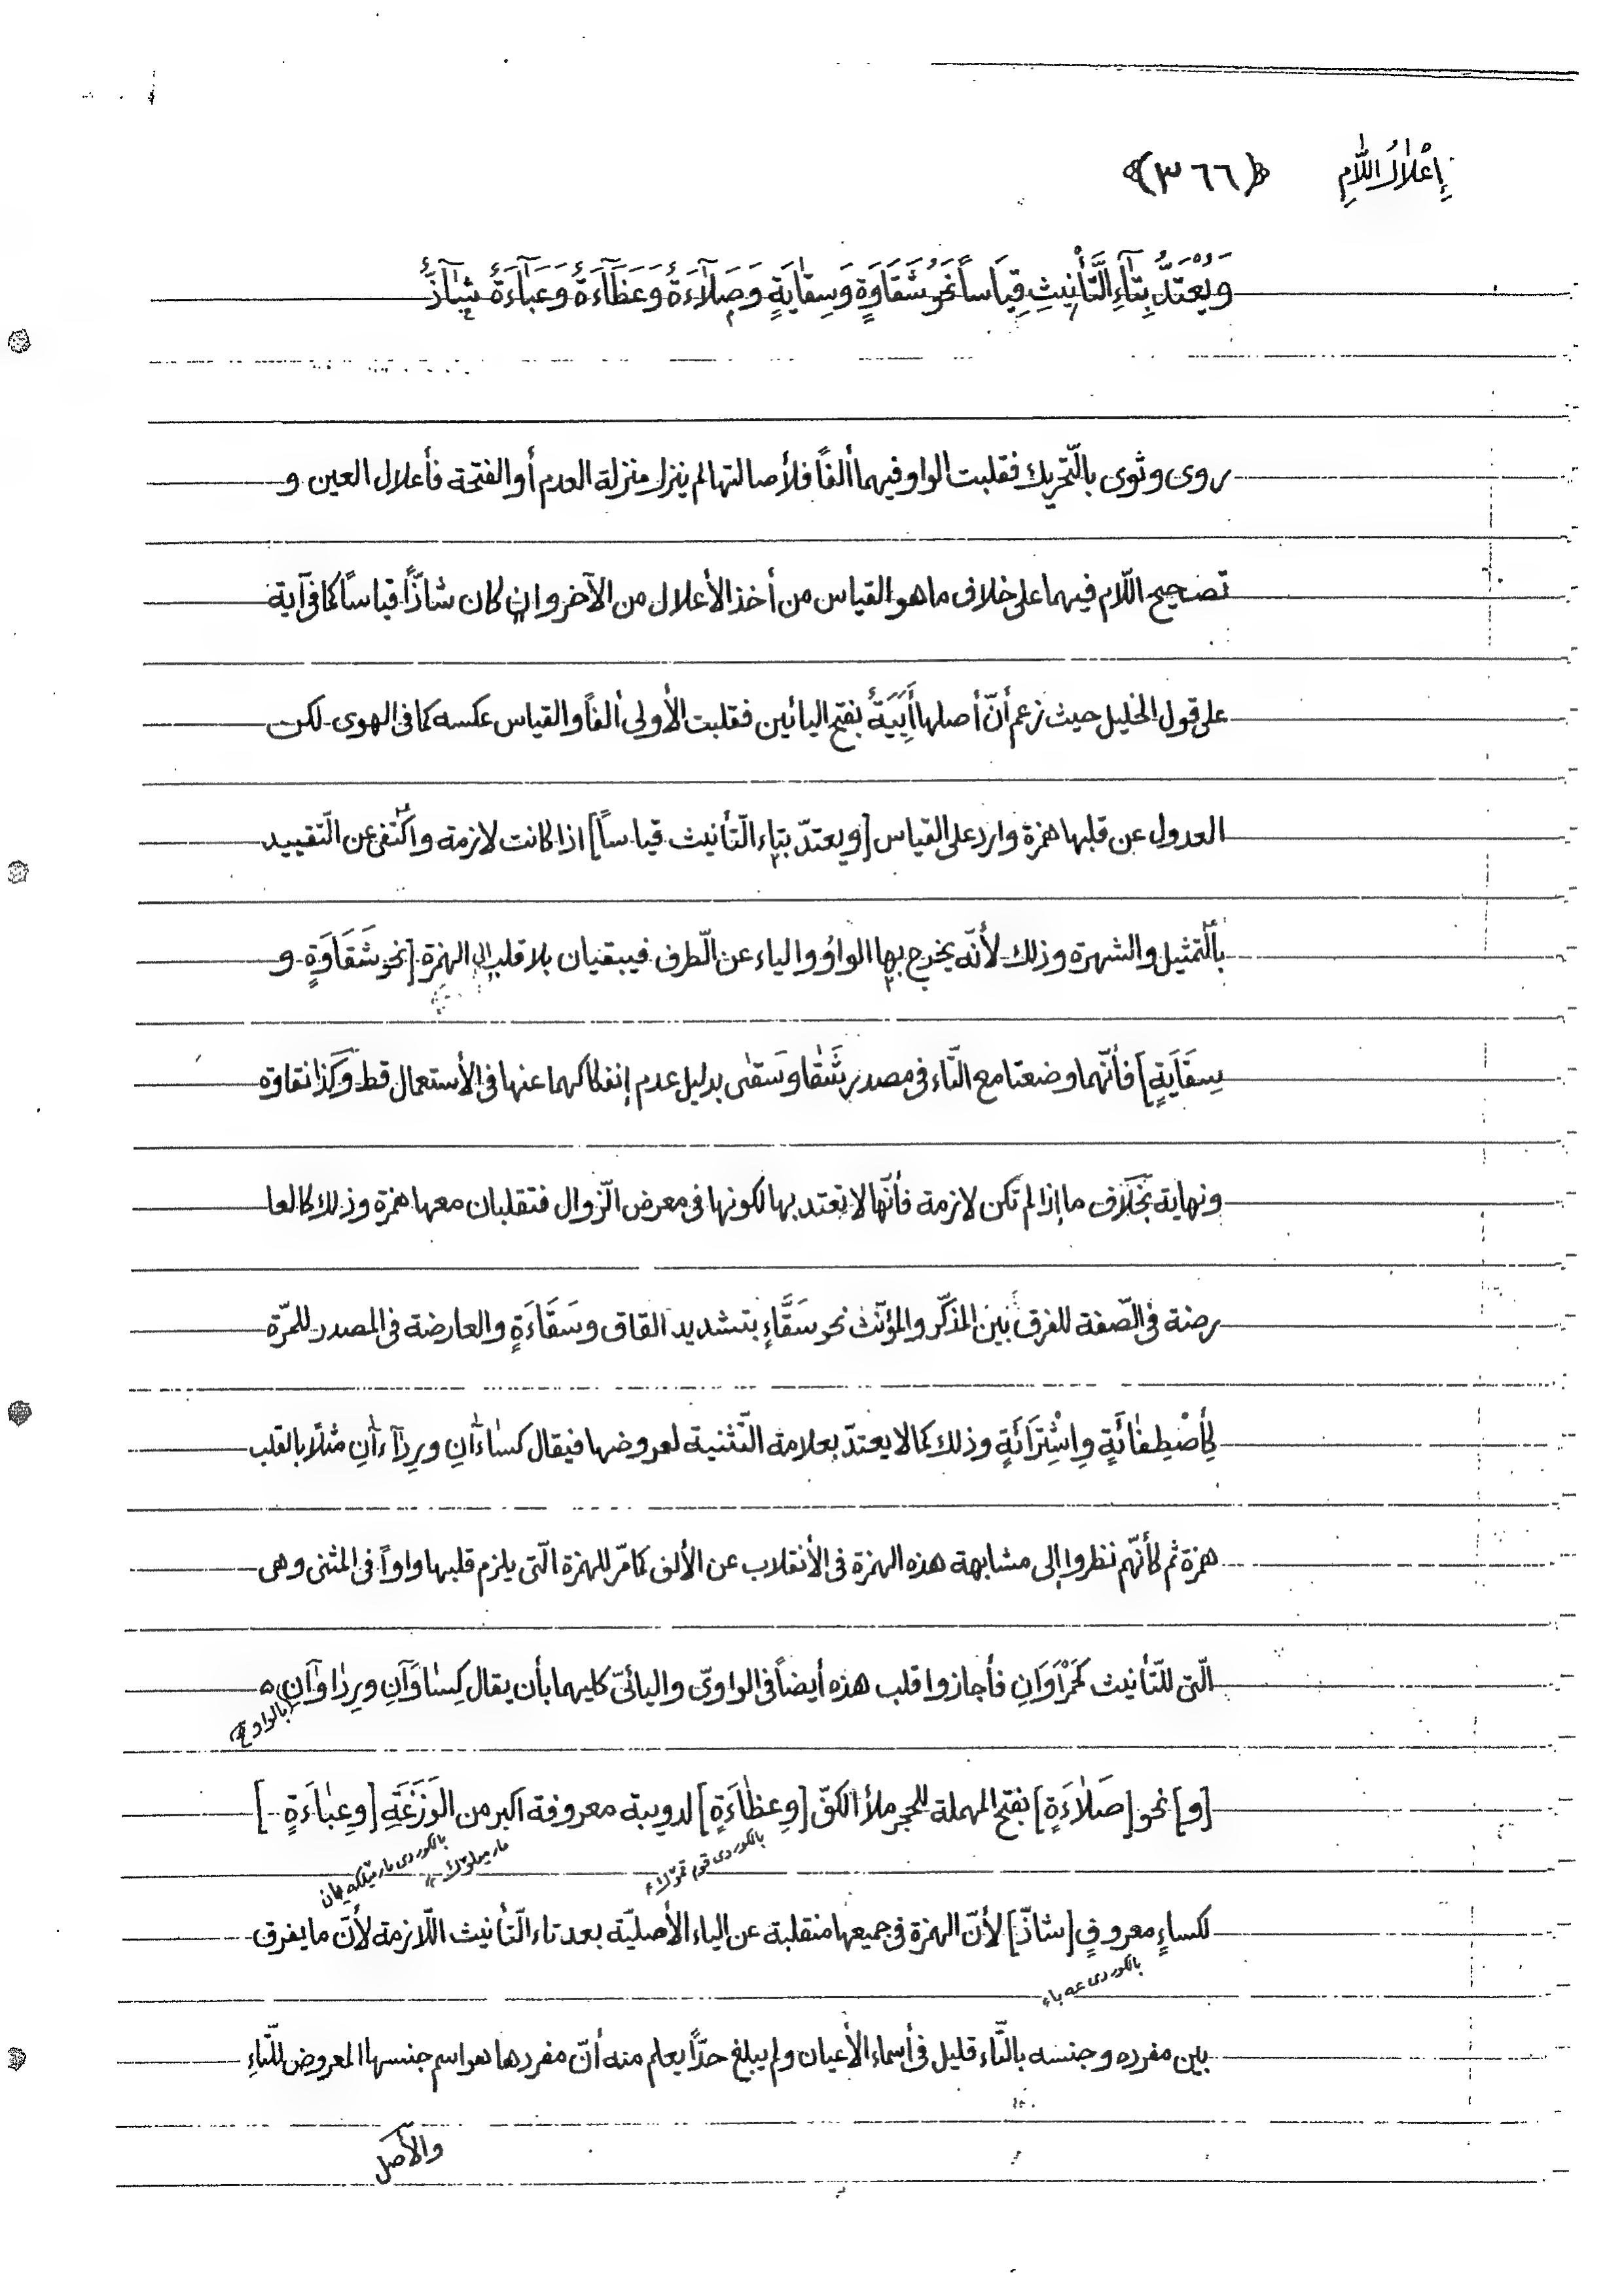 إِعْلَالُ اللَّامِ ﴿٣٦٦﴾
وَيُعْتَدُّ بِتَاءِ التَّأْنِيثِ قِيَاساً نَحْوُ شَقَاوَةٍ وَسِقَايَةٍ وَصَلَاءَةٌ وَعَظَاءَةٌ وَعَبَاءَةٌ شَاذٌّ
روى وثوى بالتّحريك فقلبت الواو فيهما ألفاً فلأصالتها لم ينزل منزلة العدم أو الفتحة فأعلال العين و
تصحيح اللّام فيهما على خلاف ما هو القياس من أخذ الأعلال من الآخر وان كان شاذّاً قياساً كما في آية
على قول الخليل حيث زعم أنّ أصلها أَيَيَةٌ بفتح اليائين فقلبت الأولى ألفاً والقياس عكسه كما فى الهوى لكن
العدول عن قلبها همزة وارد على القياس [ويعتدّ بتاء التّأنيث قياساً] اذا كانت لازمة واكتفى عن التّقييد
بالتّمثيل والشهرة وذلك لأنّه يخرج بها الواوُ والياء عن الطّرف فيبقيان بلا قلب الى الهمزة [نحو شَقَاوَةٍ و
سِقَايَةٍ] فأنّهما وضعتا مع التّاء فى مصدر شَقا وسَقى بدليل عدم إنفكاكهما عنها فى الأستعمال قط وكذا نقاوة
ونهاية بخلاف ما إذا لم تكن لازمة فأنّها لا تعتد بها لكونها فى معرض الزّوال فتقلبان معها همزة وذلك كالعا
رضة فى الصّفة للفرق بين المذكّر والمؤنّث نحو سَقَّاءٍ بتشديد القاق وسَقَّاءَةٍ والعارضة فى المصدر للمرّة
كأصْطِفائَةٍ وإشْتِرَائَةٍ وذلك كما لا يعتدّ بعلامة التّثنية لعروضها فيقال كساءآنِ ورِدآءآنِ مثلًا بالقلب
همزة ثم كأنّهم نظروا إلى مشابهة هذه الهمزة فى الأنقلاب عن الألف كما مرّ للهمزة الّتى يلزم قلبها واواً فى المثنى وهى
الّتى للتّأنيث كَحَمْرَاوَانِ فأجازوا قلب هذه أيضاً فى الواوىّ واليائىّ كليهما بأن يقال كِسَاوَآنِ ورِدَاوَآنِ
(بالواو
[و] نحو [صَلاءَةٍ] بفتح المهملة للحجر ملأ الكفّ [وعظاءَةٍ] لدويبة معروفة اكبر من الوَزَغَةِ [وعِبَاءَةٍ]
بالكوردى
مارميلوك
بالكوردى
لكساءٍ معروفٍ [شاذّ] لأنّ الهمزة فى جميعها منقلبة عن الياء الأصليّة بعد تاء التّأنيث اللّازمة لأنّ ما يفرق
بالكوردى عه باء
بين مفرده وجنسه بالتّاء قليل فى أسماء الأعيان ولم يبلغ حدّاً يعلم منه أنّ مفردها هو اسم جنسها المعروض للتّاءِ
والأصل